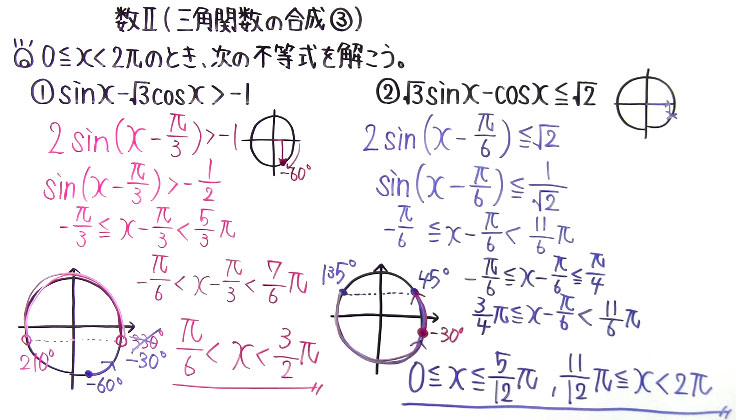 数Ⅱ(三角関数の合成③)
0≦x<2πのとき、次の不等式を解こう。
①sinx-√3cosx>-1
2sin(x-π/3)>-1
-60°
sin(x-π/3)>-1/2
-π/3≦x-π/3<5/3π
-π/6<x-π/3<7/6π
210°
330°
-30°
-60°
π/6<x<3/2π
②√3sinx-cosx≦√2
2sin(x-π/6)≦√2
sin(x-π/6)≦1/√2
-π/6≦x-π/6<11/6π
135°
45°
-30°
-π/6≦x-π/6≦π/4
3/4π≦x-π/6<11/6π
0≦x≦5/12π,11/12π≦x<2π